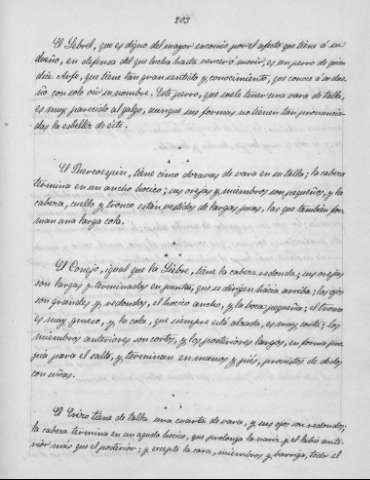 203
El Lebrel, que es digno del mayor encomio por el afecto que tiene á su
dueño, en defensa del que lucha hasta vencer ó morir, es un perro de
que tiene tan gran sentido y conocimiento, que conoce á su due-
ño con solo oir su nombre. Este perro, que suele tener una vara de talla,
es muy parecido al galgo, aunque sus formas no tienen tan pronuncia-
das la esbeltez de éste.
El Puercoespin, tiene como dozavas de vara en su talla; la cabeza
termina en un ancho hocico; sus orejas y miembros son pequeños, y la
cabeza, cuello y tronco están vestidos de largas puas, las que tambien for-
man una larga cola.
El Conejo, igual que la Liebre, tiene la cabeza redonda; sus orejas
son largas y terminadas en puntas, que se dirigen hácia arriba; los ojos
son grandes y redondos, el hocico ancho, y la boca pequeña; el tronco
es muy grueso, y la cola, que siempre está alzada, es muy corta; los
miembros anteriores son cortos, y los posteriores largos, en forma pro-
pia para el salto, y terminan en manos y piés, provistos de dedos
con uñas.
El Erizo tiene de talla una cuarta de vara, y sus ojos son redondos;
la cabeza termina en un agudo hocico, que prolonga la nariz y el labio ante-
rior más que el posterior; y excepto la cara, miembros y barriga, todo el